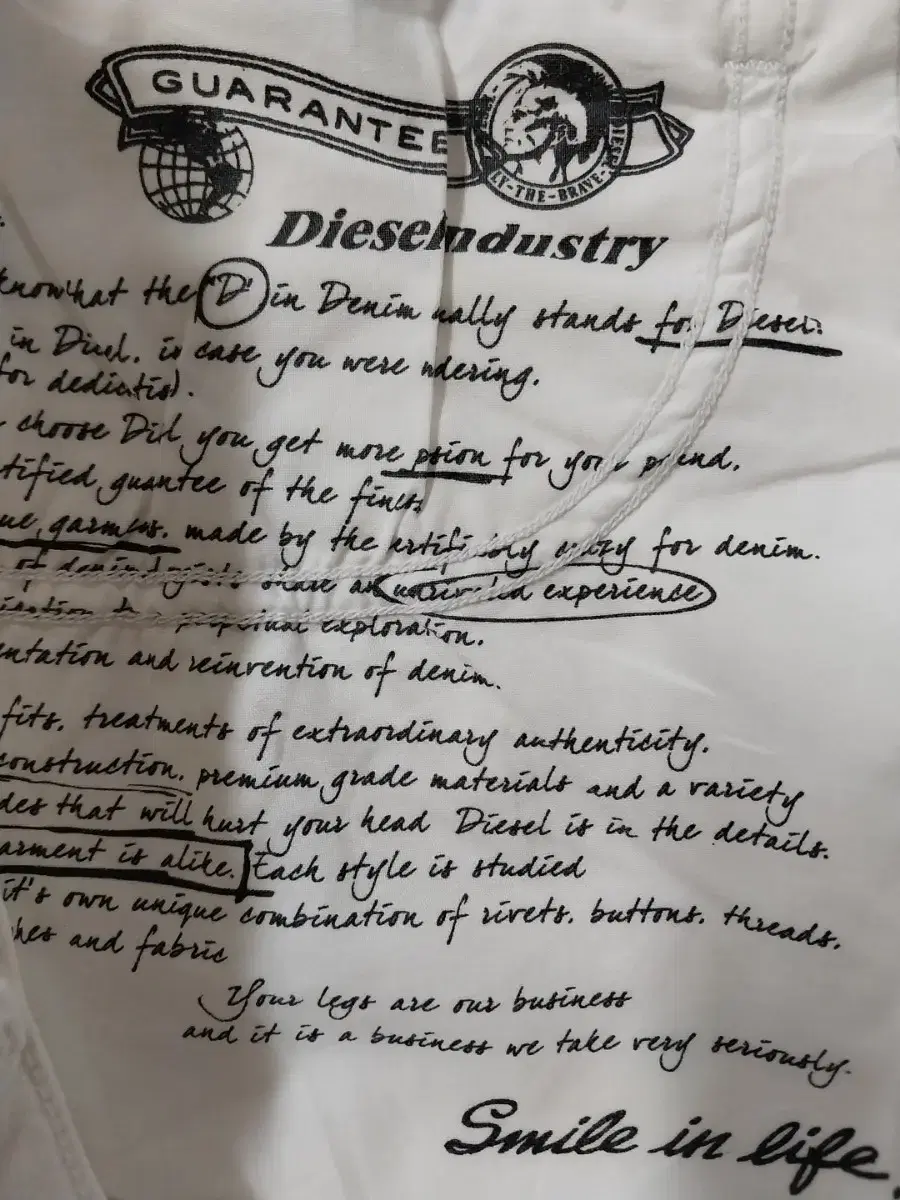 GUARANTEE
LY-THE-BRAVE
Diesel Industry
know what the "D" in Denim ually stands for Diesel.
in case you were ndering.
for
choose you get more for your
tified, guantee of the
ue, garments. made by the for denim.
of experience
perpetual exploration.
entation and reinvention of denim.
fits. treatments of extraordinary authenticity.
construction. premium grade materials and a variety
des that will hurt your head Diesel is in the details.
arment is alike. Each style is studied
it's own unique combination of rivets. buttons. threads.
hes and fabric
Your legs are our business
and it is a business we take very seriously.
Smile in life.